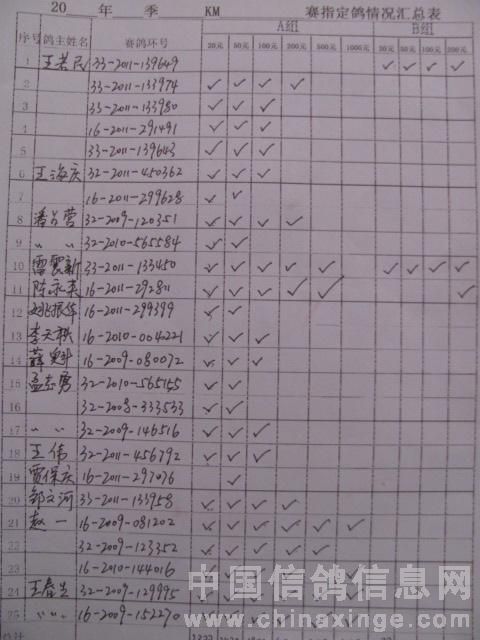 20 年 季 KM 赛指定鸽情况汇总表
序号 鸽主姓名 赛鸽环号 A组 B组
20元 50元 100元 200元 500元 1000元 20元 50元 100元 200元
1 33-2011-139649 ✓ ✓ ✓ ✓
2 33-2011-133974 ✓ ✓ ✓ ✓
3 33-2011-133980 ✓ ✓ ✓
4 16-2011-291491 ✓ ✓ ✓
5 33-2011-139643 ✓ ✓ ✓
6 王海庆 32-2011-450362 ✓ ✓ ✓
7 16-2011-299628 ✓ ✓
8 32-2009-120351 ✓ ✓ ✓ ✓
9 〃 〃 32-2010-565584 ✓ ✓
10 雷震新 33-2011-133450 ✓ ✓ ✓ ✓ ✓ ✓ ✓ ✓ ✓
11 陈永英 16-2011-292811 ✓ ✓ ✓ ✓ ✓ ✓
12 姚振华 16-2011-299399 ✓ ✓
13 16-2010-0040221 ✓ ✓ ✓
14 16-2009-080072 ✓ ✓ ✓
15 孟志勇 32-2010-565155 ✓ ✓
16 32-2008-333533 ✓ ✓
17 〃 〃 32-2009-146516 ✓ ✓ ✓
18 王伟 32-2011-456792 ✓ ✓ ✓
19 贾保庆 16-2011-297076 ✓
20 郭文河 33-2011-133958 ✓ ✓ ✓ ✓
21 赵一 16-2009-081202 ✓ ✓ ✓ ✓ ✓ ✓
22 32-2009-123352 ✓ ✓ ✓ ✓ ✓
23 16-2010-144016
24 王春生 32-2009-129995
25 〃 〃 16-2009-152270
合计
中国信鸽信息网
www.chinaxinge.com